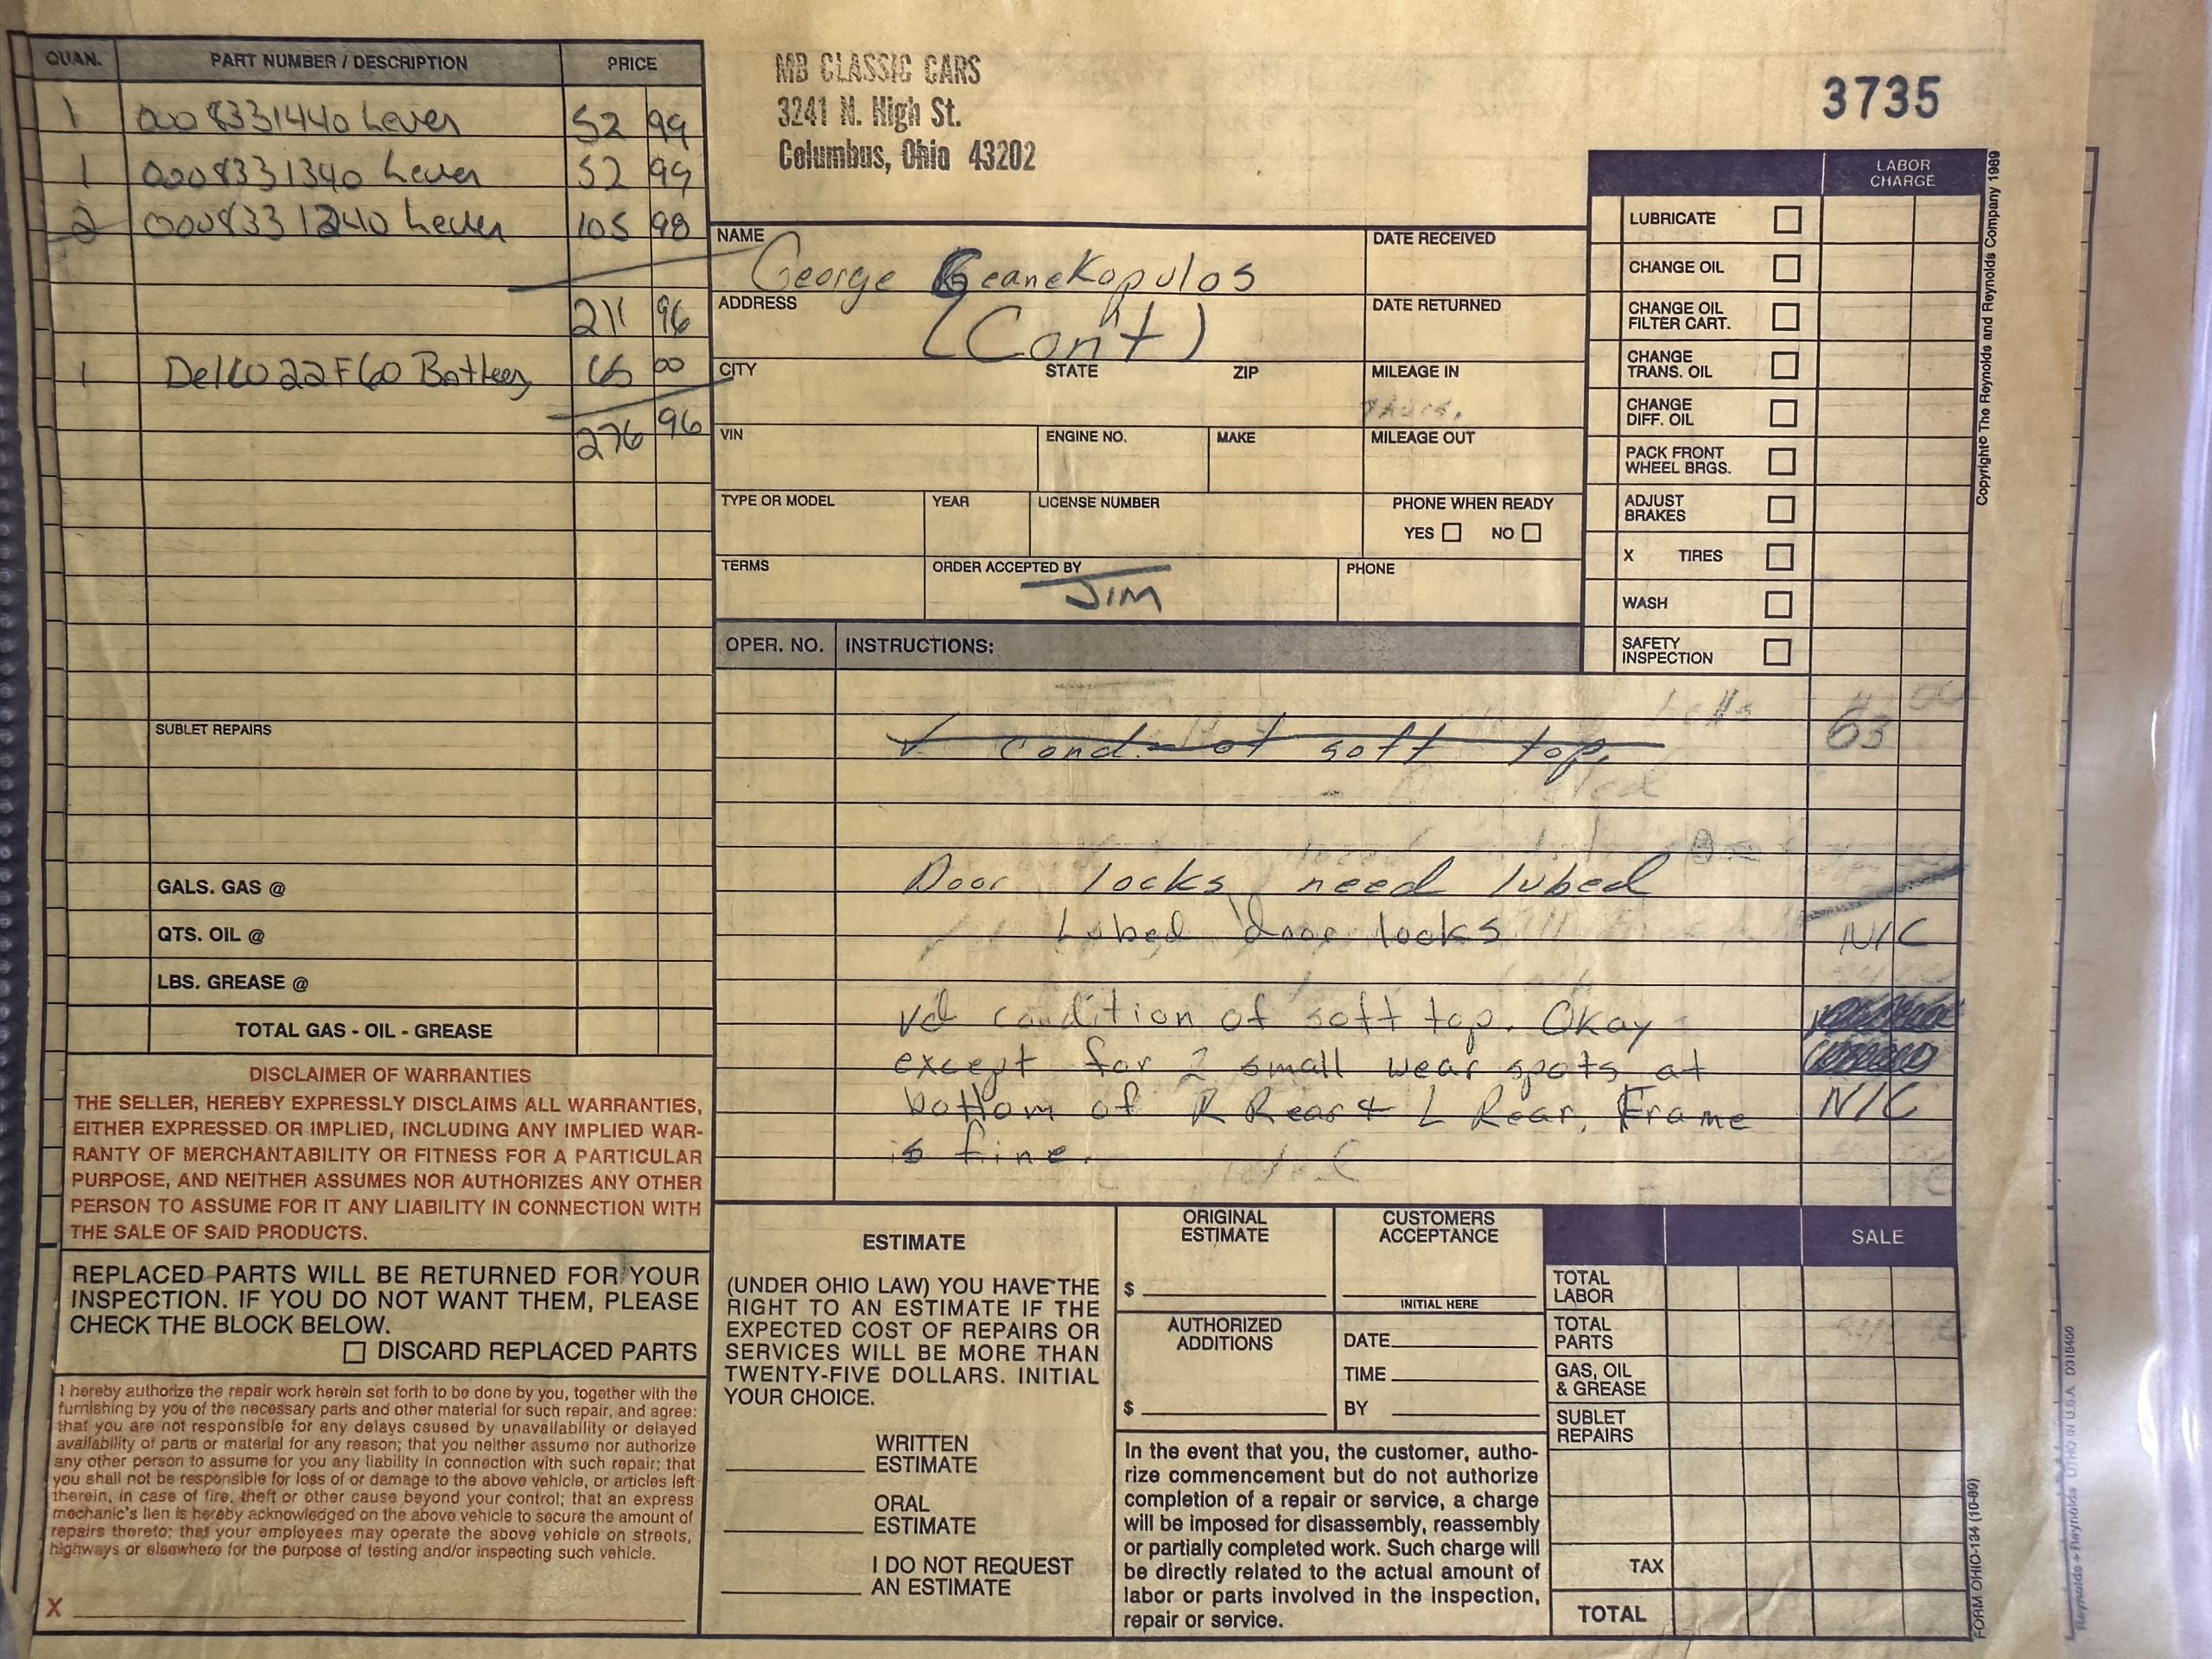 QUAN. PART NUMBER / DESCRIPTION PRICE
1 0008331440 Lever 52 99
1 0008331340 Lever 52 99
2 0008331240 Lever 105 98
211 96
1 Delco 22F60 Battery 65 00
276 96
SUBLET REPAIRS
GALS. GAS @
QTS. OIL @
LBS. GREASE @
TOTAL GAS - OIL - GREASE
DISCLAIMER OF WARRANTIES
THE SELLER, HEREBY EXPRESSLY DISCLAIMS ALL WARRANTIES,
EITHER EXPRESSED OR IMPLIED, INCLUDING ANY IMPLIED WAR-
RANTY OF MERCHANTABILITY OR FITNESS FOR A PARTICULAR
PURPOSE, AND NEITHER ASSUMES NOR AUTHORIZES ANY OTHER
PERSON TO ASSUME FOR IT ANY LIABILITY IN CONNECTION WITH
THE SALE OF SAID PRODUCTS.
REPLACED PARTS WILL BE RETURNED FOR YOUR
INSPECTION. IF YOU DO NOT WANT THEM, PLEASE
CHECK THE BLOCK BELOW.
DISCARD REPLACED PARTS
I hereby authorize the repair work herein set forth to be done by you, together with the
furnishing by you of the necessary parts and other material for such repair, and agree:
that you are not responsible for any delays caused by unavailability or delayed
availability of parts or material for any reason; that you neither assume nor authorize
any other person to assume for you any liability in connection with such repair; that
you shall not be responsible for loss of or damage to the above vehicle, or articles left
therein, in case of fire, theft or other cause beyond your control; that an express
mechanic's lien is hereby acknowledged on the above vehicle to secure the amount of
repairs thereto; that your employees may operate the above vehicle on streets,
highways or elsewhere for the purpose of testing and/or inspecting such vehicle.
X
MB CLASSIC CARS
3241 N. High St.
Columbus, Ohio 43202
3735
NAME George Geanekopulos DATE RECEIVED
ADDRESS (Con't) DATE RETURNED
CITY STATE ZIP MILEAGE IN
VIN ENGINE NO. MAKE MILEAGE OUT
TYPE OR MODEL YEAR LICENSE NUMBER PHONE WHEN READY
YES NO
TERMS ORDER ACCEPTED BY JIM PHONE
LABOR
CHARGE
LUBRICATE
CHANGE OIL
CHANGE OIL
FILTER CART.
CHANGE
TRANS. OIL
CHANGE
DIFF. OIL
PACK FRONT
WHEEL BRGS.
ADJUST
BRAKES
X TIRES
WASH
SAFETY
INSPECTION
Copyright© The Reynolds and Reynolds Company 1989
OPER. NO. INSTRUCTIONS:
✓ cond. of soft top.
Door locks need lubed
Lubed door locks N/C
condition of soft top. Okay
except for 2 small wear spots at
bottom of R Rear & L Rear. Frame N/C
is fine.
ESTIMATE
(UNDER OHIO LAW) YOU HAVE THE
RIGHT TO AN ESTIMATE IF THE
EXPECTED COST OF REPAIRS OR
SERVICES WILL BE MORE THAN
TWENTY-FIVE DOLLARS. INITIAL
YOUR CHOICE.
WRITTEN
ESTIMATE
ORAL
ESTIMATE
I DO NOT REQUEST
AN ESTIMATE
ORIGINAL
ESTIMATE
$
AUTHORIZED
ADDITIONS
$
CUSTOMERS
ACCEPTANCE
INITIAL HERE
DATE
TIME
BY
In the event that you, the customer, autho-
rize commencement but do not authorize
completion of a repair or service, a charge
will be imposed for disassembly, reassembly
or partially completed work. Such charge will
be directly related to the actual amount of
labor or parts involved in the inspection,
repair or service.
SALE
TOTAL
LABOR
TOTAL
PARTS
GAS, OIL
& GREASE
SUBLET
REPAIRS
TAX
TOTAL
FORM OHIO-134 (10-89)
Reynolds + Reynolds LITHO IN U.S.A.